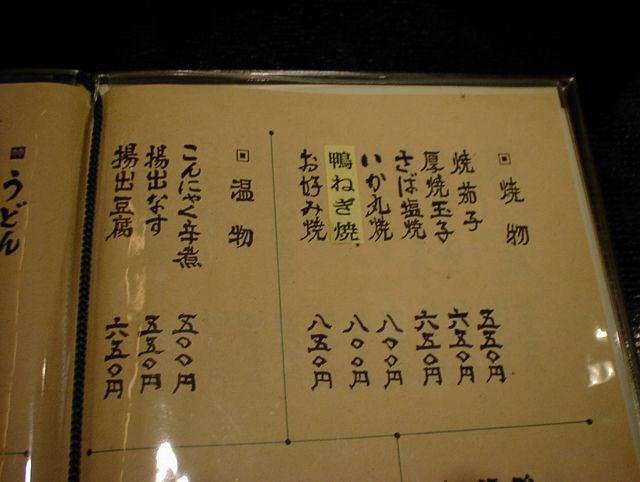 焼物
焼茄子 五五〇円
厚焼玉子 六五〇円
さば塩焼 六五〇円
いか丸焼 八〇〇円
鴨ねぎ焼 八〇〇円
お好み焼 八五〇円
温物
こんにゃく辛煮 五〇〇円
揚出なす 五五〇円
揚出豆腐 六五〇円
うどん